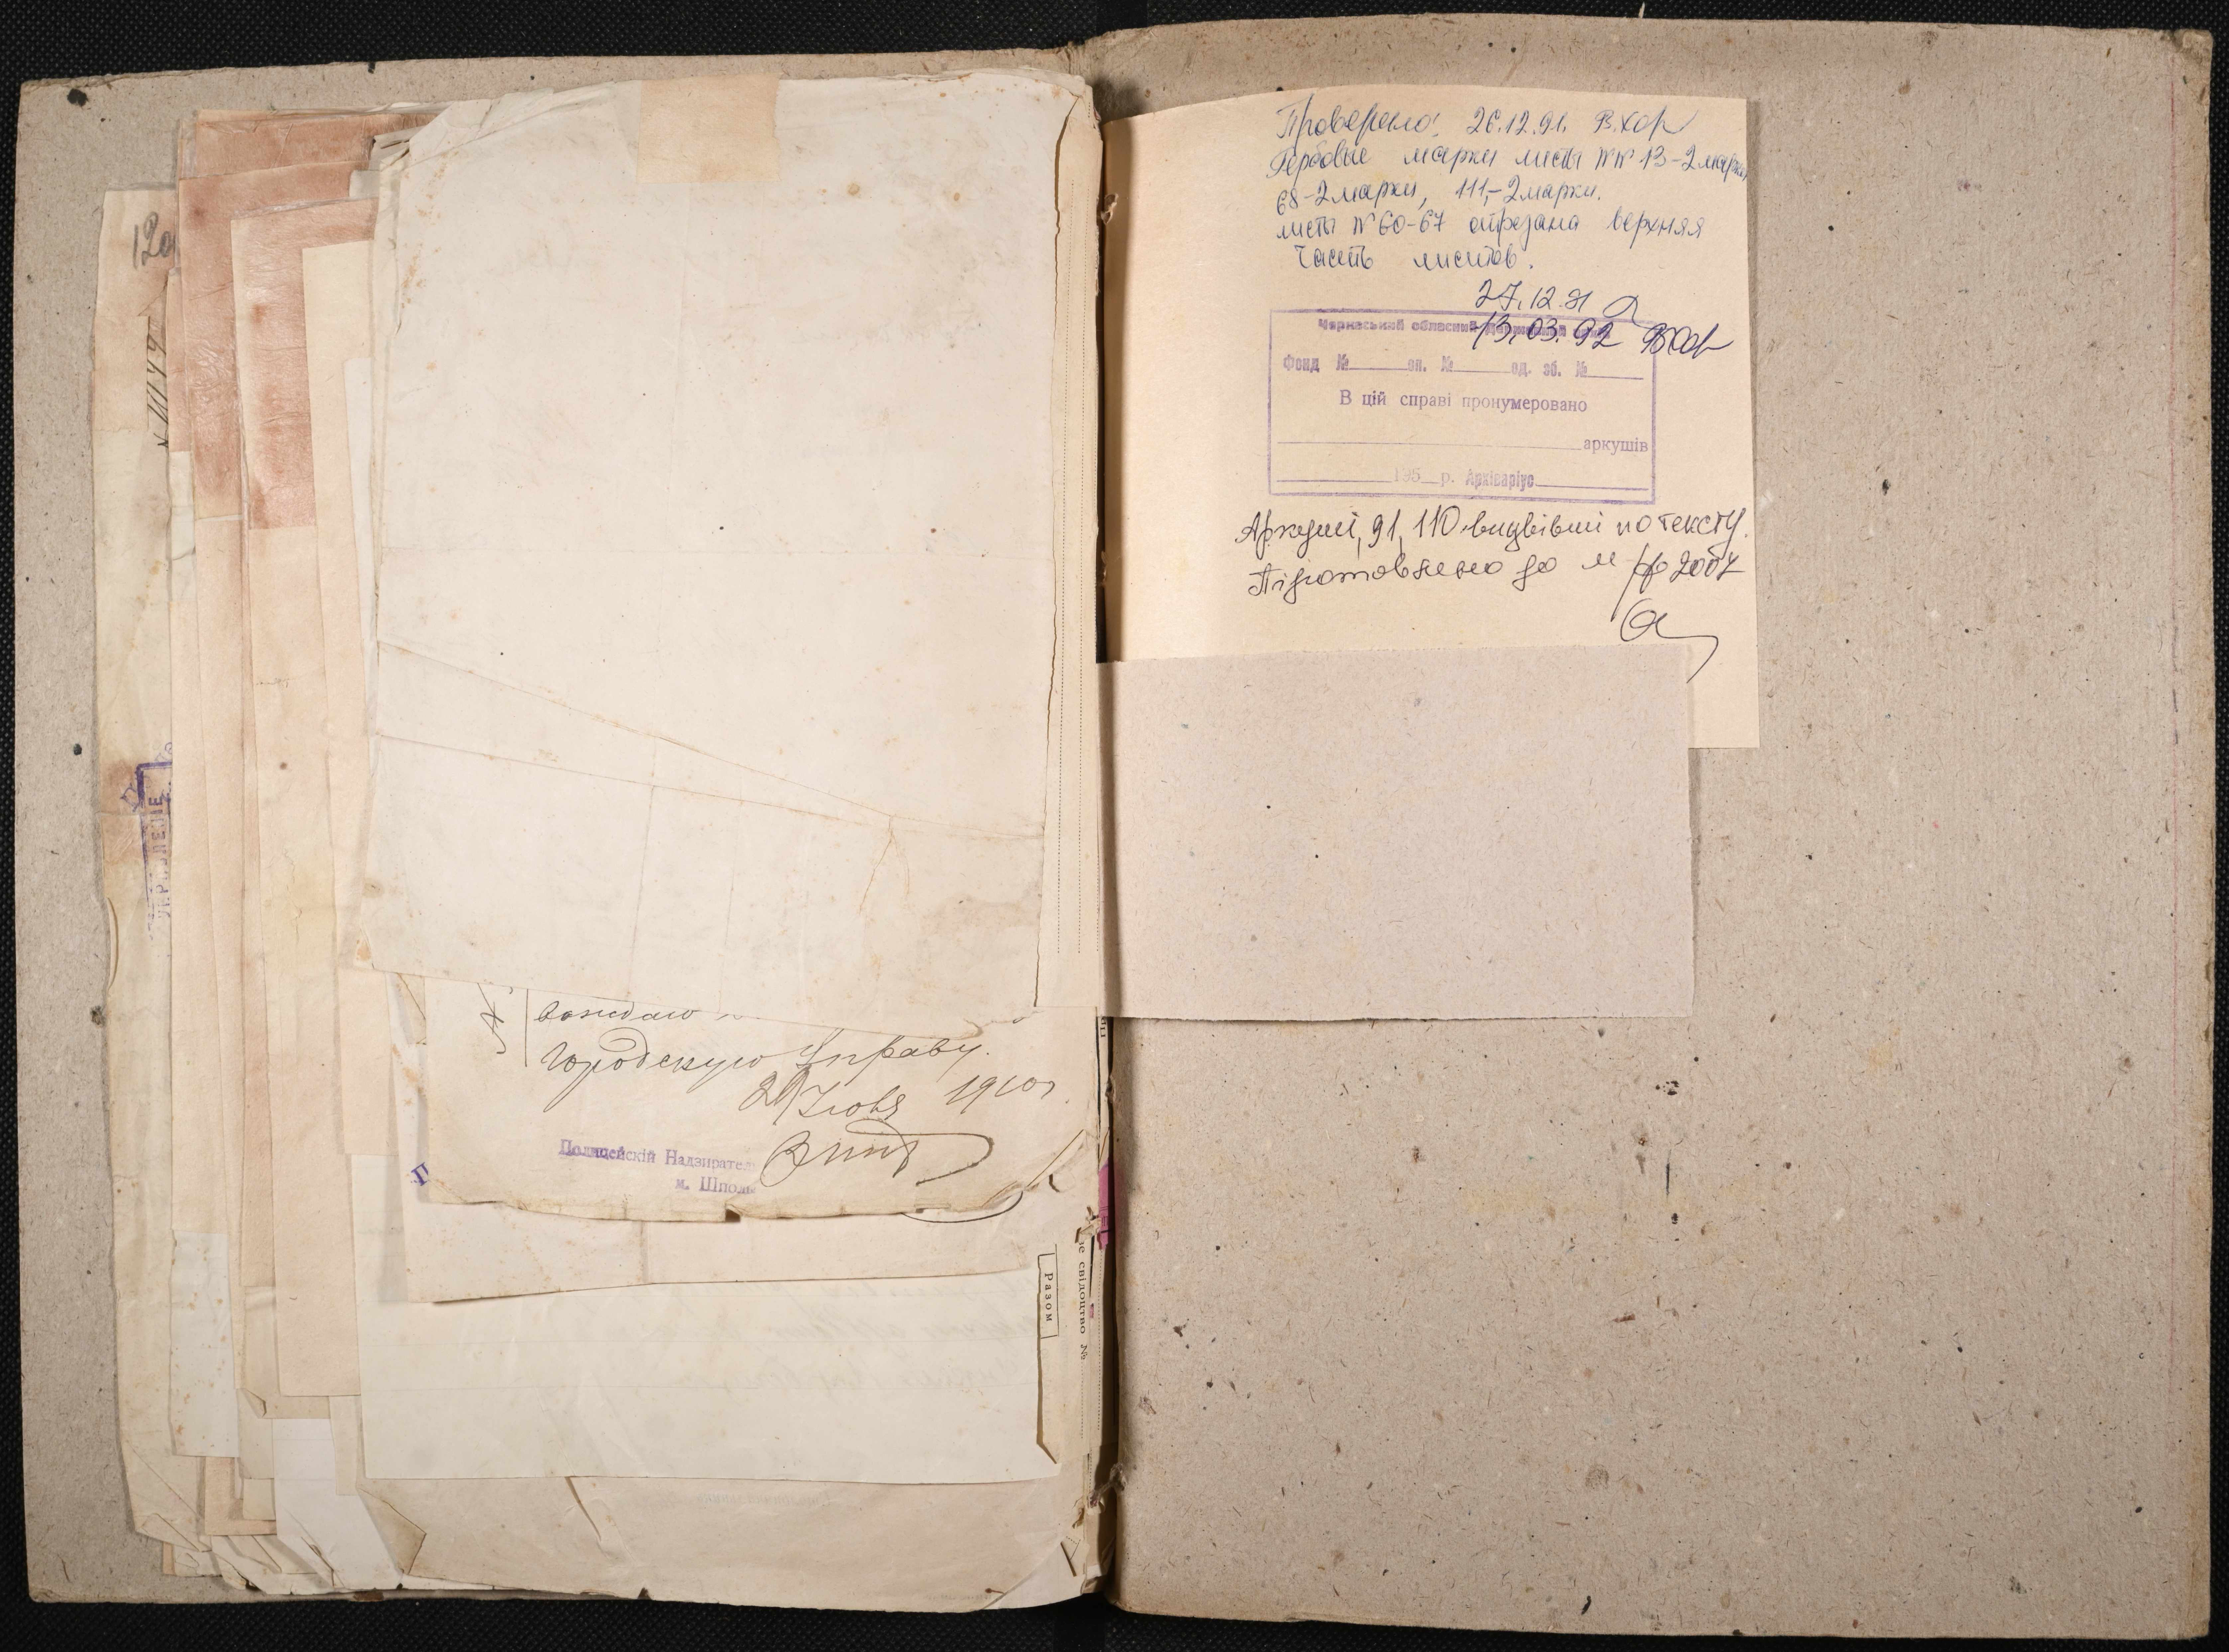 120
УПРАВЛЕНІЕ
Городскую Управу.
1910 г.
Полицейскій Надзиратель
м. Шполы
П
Разом
е свідоцтво №
Проверено: 26.12.91. В.Хор
Гербовые марки листы №№ 13-2марки,
68-2марки, 111,-2марки.
листы № 60-67 отрезана верхняя
часть листов.
27.12.91
13.03.92 ВХор
Черкаський обласний державний архів
Фонд № оп. № од. зб. №
В цій справі пронумеровано
аркушів
195 р. Архіваріус
Аркуші, 91, 110 вицвівші по тексту.
Підготовлено до м/ф 2007